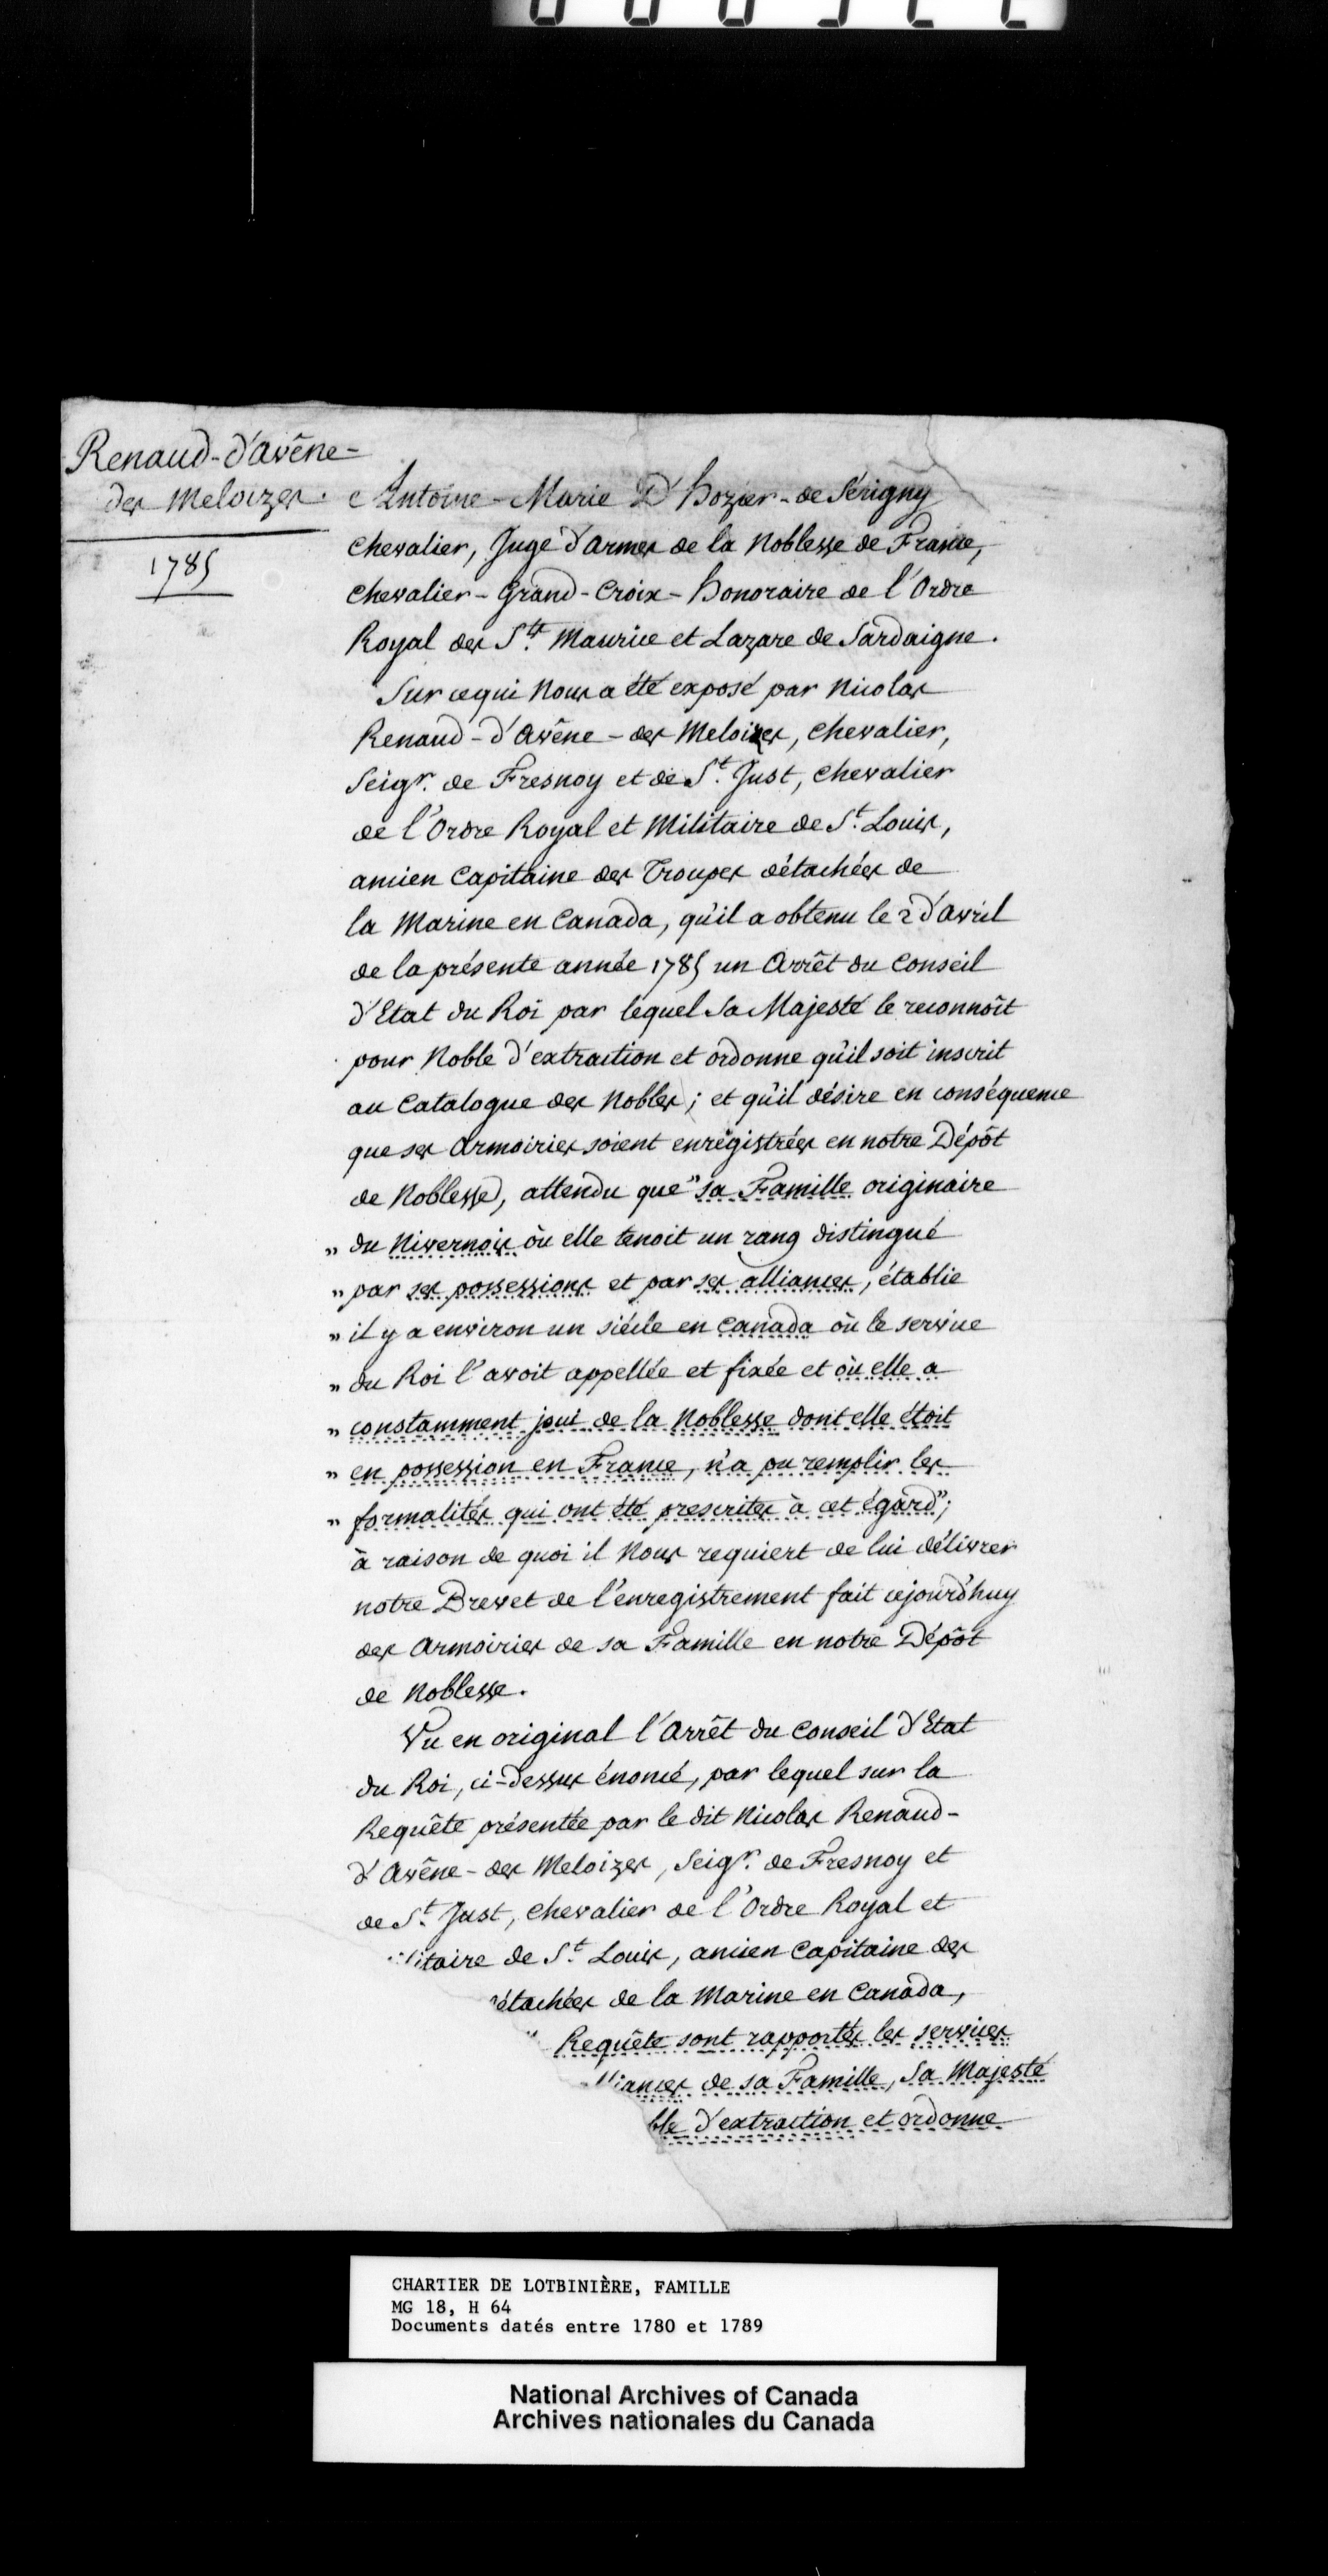 Renaud-d'avêne-
des Meloizes.
1785
Antoine-Marie D'hozier-de Sérigny
Chevalier, Juge d'armes de la Noblesse de France,
Chevalier-Grand-Croix-honoraire de l'Ordre
Royal des Sts. Maurice et Lazare de Sardaigne.
Sur ce qui Nous a été exposé par Nicolas
Renaud-d'avêne-des Meloizes, chevalier,
Seigr. de Fresnoy et de St. Just, chevalier
de l'Ordre Royal et Militaire de St. Louis,
ancien Capitaine des Troupes détachées de
la Marine en Canada, qu'il a obtenu le 2 d'avril
de la présente année 1785 un Arrêt du Conseil
d'Etat du Roi par lequel Sa Majesté le reconnoît
pour Noble d'extraction et ordonne qu'il soit inscrit
au Catalogue des Nobles; et qu'il désire en conséquence
que ses Armoiries soient enrégistrées en notre Dépôt
de Noblesse, attendu que "sa Famille originaire
" du Nivernois où elle tenoit un rang distingué
" par ses possessions et par ses alliances, établie
" il y a environ un siécle en Canada où le service
" du Roi l'avoit appellée et fixée et où elle a
" constamment joui de la Noblesse dont elle étoit
" en possession en France, n'a pu remplir les
" formalités qui ont été prescrites à cet égard";
à raison de quoi il Nous requiert de lui délivrer
notre Brevet de l'enregistrement fait cejourd'huy
des Armoiries de sa Famille en notre Dépôt
de Noblesse.
Vu en original l'Arrêt du Conseil d'Etat
du Roi, ci-dessus énoncé, par lequel sur la
Requête présentée par le dit Nicolas Renaud-
d'Avêne-des Meloizes, Seigr. de Fresnoy et
de St. Just, chevalier de l'Ordre Royal et
litaire de St. Louis, ancien Capitaine des
étachées de la Marine en Canada,
Requête sont rapportés les services
liances de sa Famille, Sa Majesté
ble d'extraction et ordonne
CHARTIER DE LOTBINIÈRE, FAMILLE
MG 18, H 64
Documents datés entre 1780 et 1789
National Archives of Canada
Archives nationales du Canada